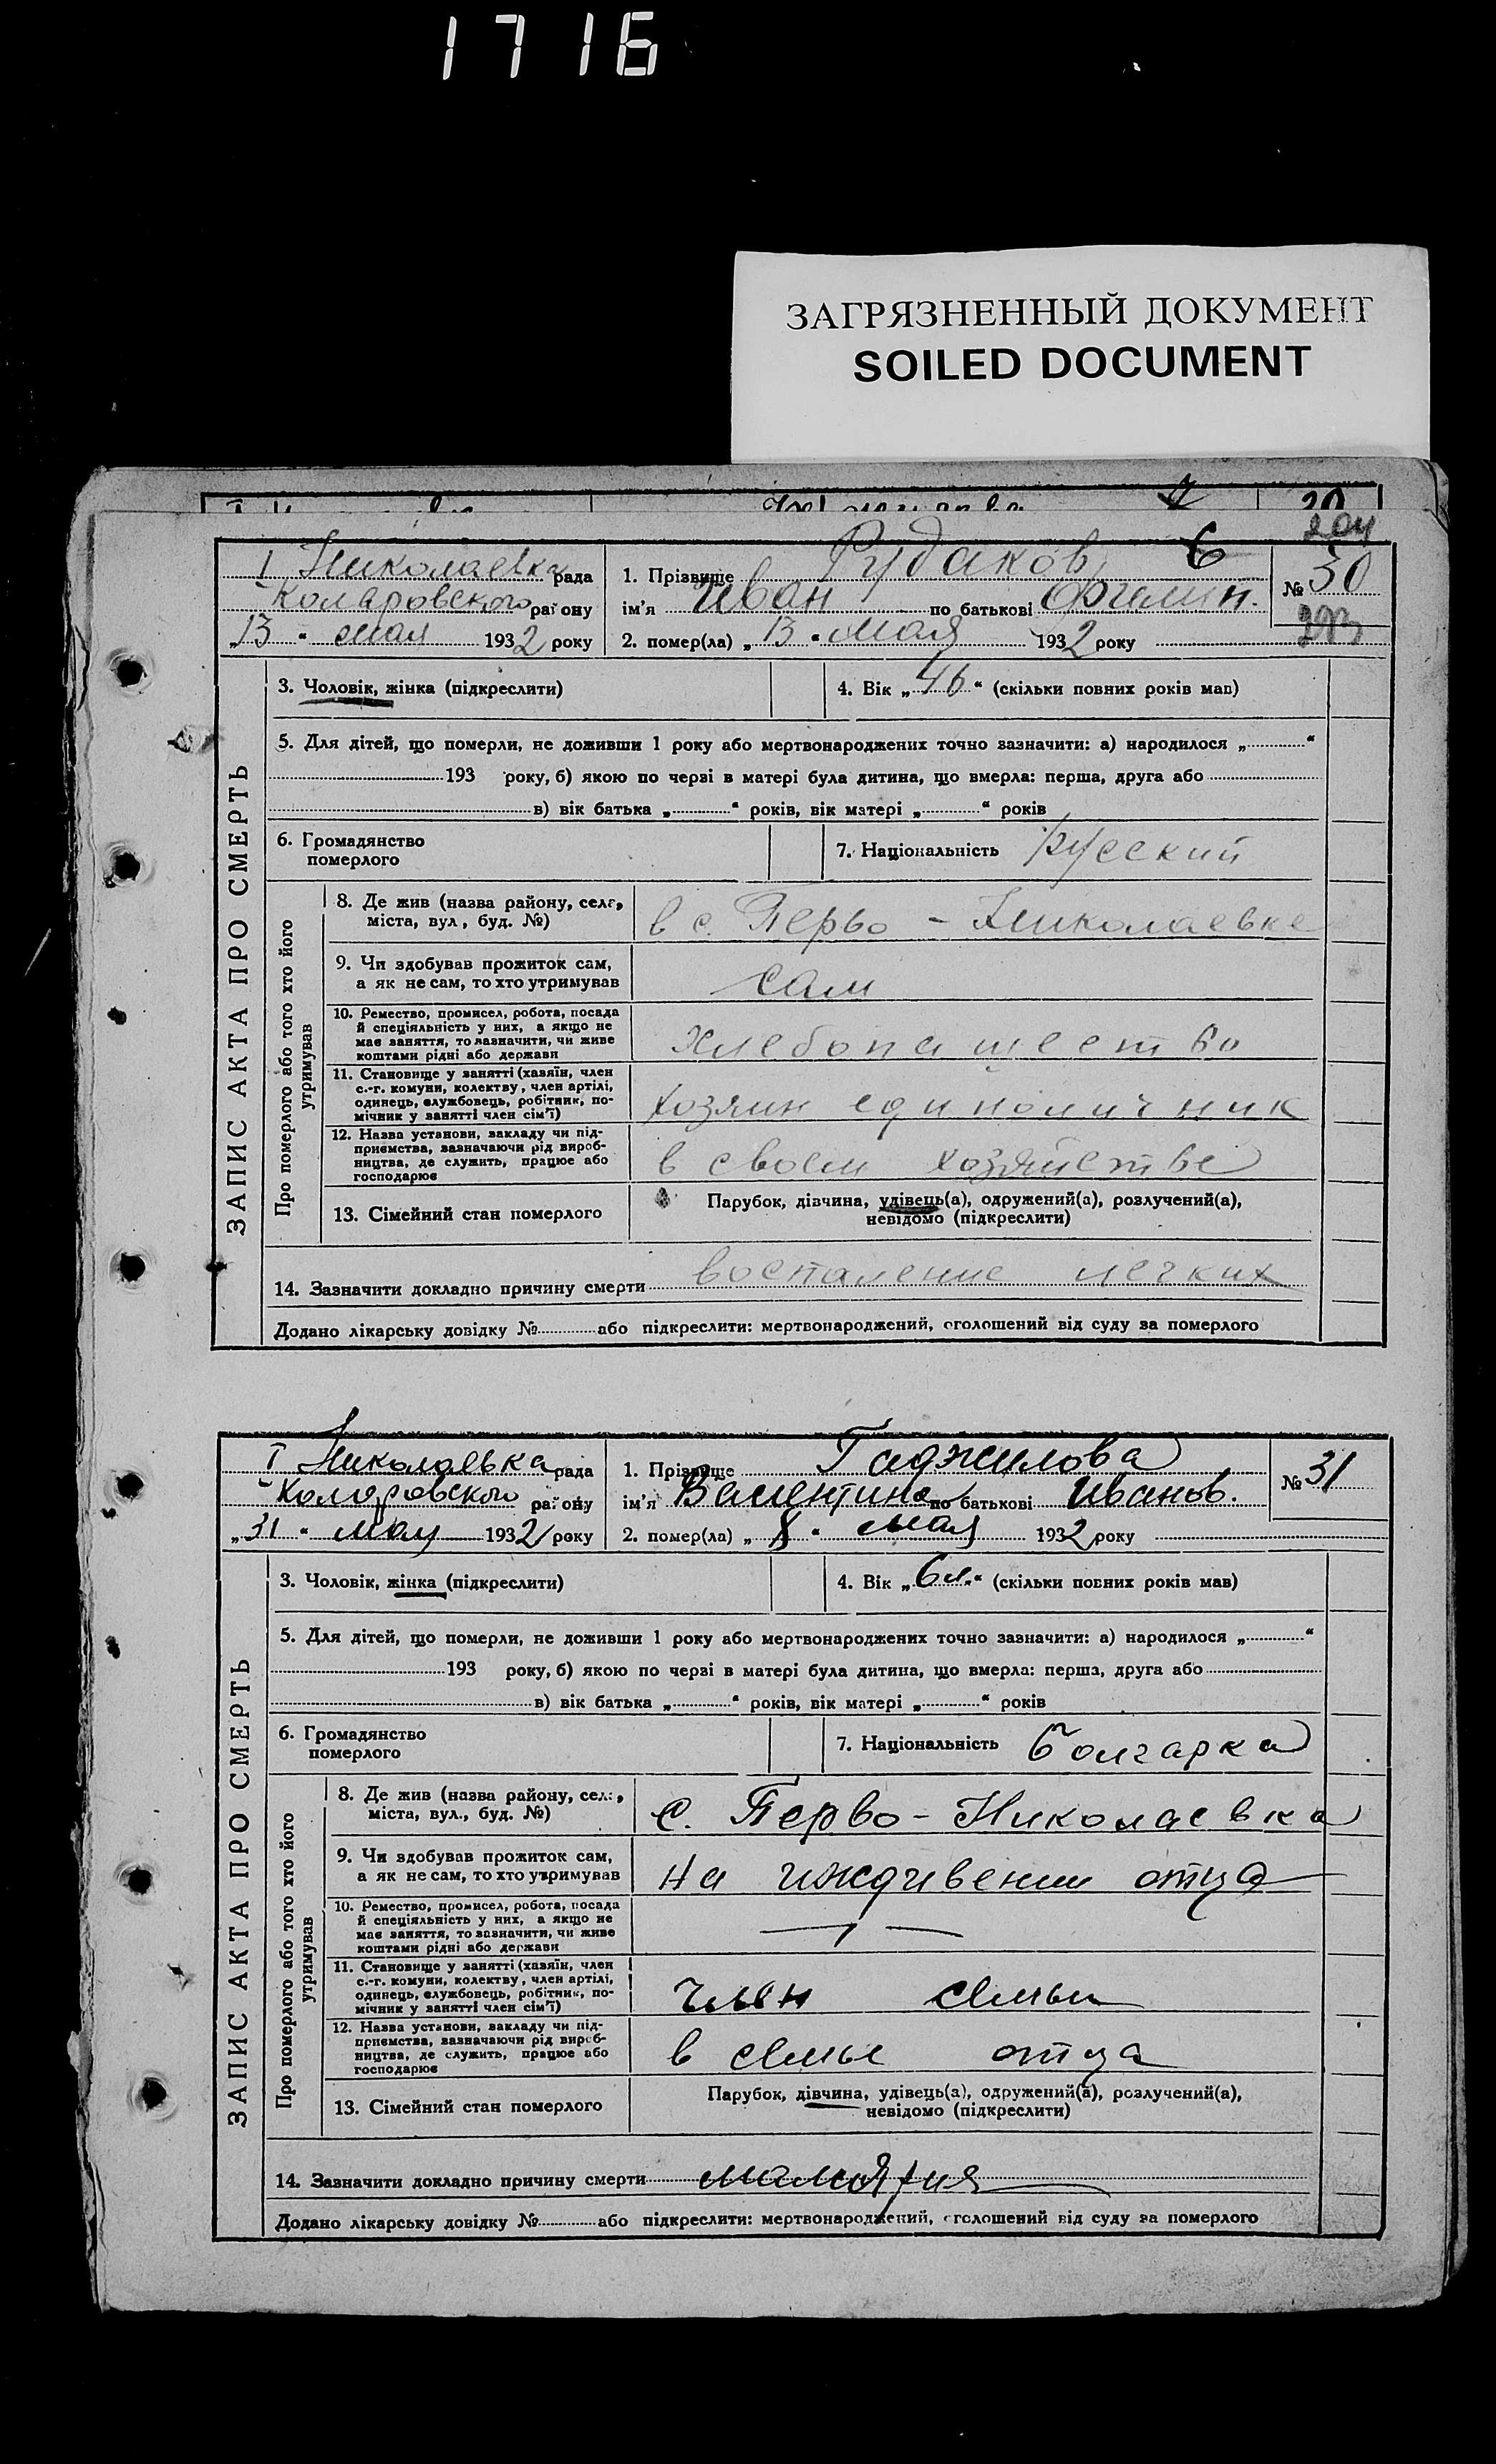 1716
ЗАГРЯЗНЕННЫЙ ДОКУМЕНТ
SOILED DOCUMENT
204
I Николаевка рада
Коларовского району
„13“ мая 1932 року
1. Прізвище Рудаков
ім'я Иван по батькові
2. помер(ла) „13“ мая 1932 року
№ 30
ЗАПИС АКТА ПРО СМЕРТЬ
3. Чоловік, жінка (підкреслити)
4. Вік „46“ (скільки повних років мав)
5. Для дітей, що померли, не доживши 1 року або мертвонароджених точно зазначити: а) народилося „ “
193 року, б) якою по черзі в матері була дитина, що вмерла: перша, друга або
в) вік батька „ “ років, вік матері „ “ років
6. Громадянство
померлого
7. Національність Русский
Про померлого або того хто його
утримував
8. Де жив (назва району, села,
міста, вул, буд. №)
в с. Перво - Николаевке
9. Чи здобував прожиток сам,
а як не сам, то хто утримував
сам
10. Ремество, промисел, робота, посада
й спеціяльність у них, а якщо не
має заняття, то зазначити, чи живе
коштами рідні або держави
Хлебопашество
11. Становище у занятті (хазяїн, член
с.-г. комуни, колективу, член артілі,
одинець, службовець, робітник, по-
мічник у занятті член сім'ї)
хозяин единоличник
12. Назва установи, закладу чи під-
приємства, зазначаючи рід вироб-
ництва, де служить, працює або
господарює
в своем хозяйстве
13. Сімейний стан померлого
Парубок, дівчина, удівець(а), одружений(а), розлучений(а),
невідомо (підкреслити)
14. Зазначити докладно причину смерти воспаление легких
Додано лікарську довідку № або підкреслити: мертвонароджений, оголошений від суду за померлого
I Николаевка рада
Коларовского району
„31“ мая 1932 року
1. Прізвище Гаджилова
ім'я Валентина по батькові Иванов.
2. помер(ла) „ “ мая 1932 року
№ 31
ЗАПИС АКТА ПРО СМЕРТЬ
3. Чоловік, жінка (підкреслити)
4. Вік „6 “ (скільки повних років мав)
5. Для дітей, що померли, не доживши 1 року або мертвонароджених точно зазначити: а) народилося „ “
193 року, б) якою по черзі в матері була дитина, що вмерла: перша, друга або
в) вік батька „ “ років, вік матері „ “ років
6. Громадянство
померлого
7. Національність болгарка
Про померлого або того хто його
утримував
8. Де жив (назва району, села,
міста, вул., буд. №)
С. Перво - Николаевка
9. Чи здобував прожиток сам,
а як не сам, то хто утримував
на иждивении отца
10. Ремество, промисел, робота, посада
й спеціяльність у них, а якщо не
має заняття, то зазначити, чи живе
коштами рідні або держави
11. Становище у занятті (хазяїн, член
с.-г. комуни, колективу, член артілі,
одинець, службовець, робітник, по-
мічник у занятті член сім'ї)
член семьи
12. Назва установи, закладу чи під-
приємства, зазначаючи рід вироб-
ництва, де служить, працює або
господарює
в семье отца
13. Сімейний стан померлого
Парубок, дівчина, удівець(а), одружений(а), розлучений(а),
невідомо (підкреслити)
14. Зазначити докладно причину смерти
Додано лікарську довідку № або підкреслити: мертвонароджений, оголошений від суду за померлого